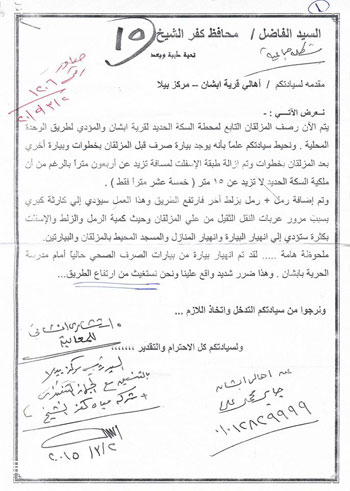 ١
السيد الفاضل / محافظ كفر الشيخ
١٥
تحية طيبة وبعد
صادر
١٢٠٦
٢٠١٥/٣/٢
مقدمه لسيادتكم / أهالي قرية ابشان – مركز بيلا
نعرض الآتي : -
يتم الآن رصف المزلقان التابع لمحطة السكة الحديد لقرية ابشان والمؤدي لطريق الوحدة
المحلية . ونحيط سيادتكم علماً بأنه يوجد بيارة صرف قبل المزلقان بخطوات وبيارة أخري
بعد المزلقان بخطوات وتم إزالة طبقة الإسفلت لمسافة تزيد عن أربعون متراً بالرغم من أن
ملكية السكة الحديد لا تزيد عن ١٥ متر ( خمسة عشر متراً فقط ) .
وتم إضافة رمل + رمل بزلط أحر فارتفع الطريق وهذا العمل سيؤدي إلي كارثة كبري
بسبب مرور عربات النقل الثقيل من علي المزلقان وحيث كمية الرمل والزلط والإسفلت
بكثرة ستؤدي إلي انهيار البيارة وانهيار المنازل والمسجد المحيط بالمزلقان والبيارتين.
ملحوظة هامة ..... لقد تم انهيار بيارة من بيارات الصرف الصحي حالياً أمام مدرسة
الحرية بابشان . وهذا ضرر شديد واقع علينا ونحن نستغيث من ارتفاع الطريق...
ونرجوا من سيادتكم التدخل واتخاذ اللازم ...
ولسيادتكم كل الاحترام والتقدير ،،،،،،،
السيد رئيس مركز بيلا
بالتنسيق مع
+ شركة مياه كفر الشيخ
٢٠١٥/٣/٢
عنه اهالى ابشان
جابر محمد على
٠١٠١٢٨٢٩٩٩٩